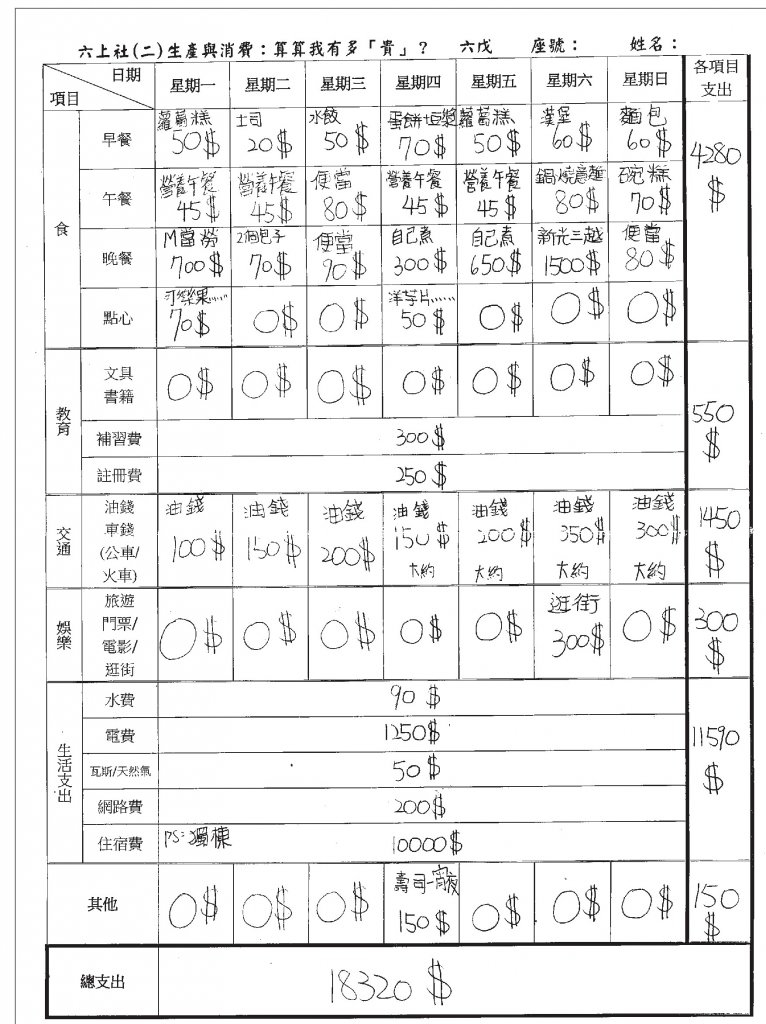 六上社(二)生產與消費：算算我有多「貴」？ 六戊 座號： 姓名：
日期 項目 星期一 星期二 星期三 星期四 星期五 星期六 星期日 各項目支出
食
早餐 蘿蔔糕 土司 水餃 蛋餅、豆漿 蘿蔔糕 漢堡 麵包
50$ 20$ 50$ 70$ 50$ 60$ 60$
4280$
午餐 營養午餐 營養午餐 便當 營養午餐 營養午餐 鍋燒意麵 碗粿
45$ 45$ 80$ 45$ 45$ 80$ 70$
晚餐 M當勞 2個包子 便當 自己煮 自己煮 新光三越 便當
700$ 70$ 90$ 300$ 650$ 1500$ 80$
點心 洋芋片……
70$ 0$ 0$ 50$ 0$ 0$ 0$
教育
文具
書籍 0$ 0$ 0$ 0$ 0$ 0$ 0$
550$
補習費 300$
註冊費 250$
交通
油錢 油錢 油錢 油錢 油錢 油錢 油錢 油錢
車錢 100$ 150$ 200$ 150$ 200$ 350$ 300$
1450$
(公車/
火車) 大約 大約 大約 大約
娛樂
旅遊 逛街
門票/ 0$ 0$ 0$ 0$ 0$ 300$ 0$
300$
電影/
逛街
生活支出
水費 90$
電費 1250$
11590$
瓦斯/天然氣 50$
網路費 200$
住宿費 PS:獨棟 10000$
其他 壽司-宵夜
0$ 0$ 0$ 150$ 0$ 0$ 0$
150$
總支出 18320$